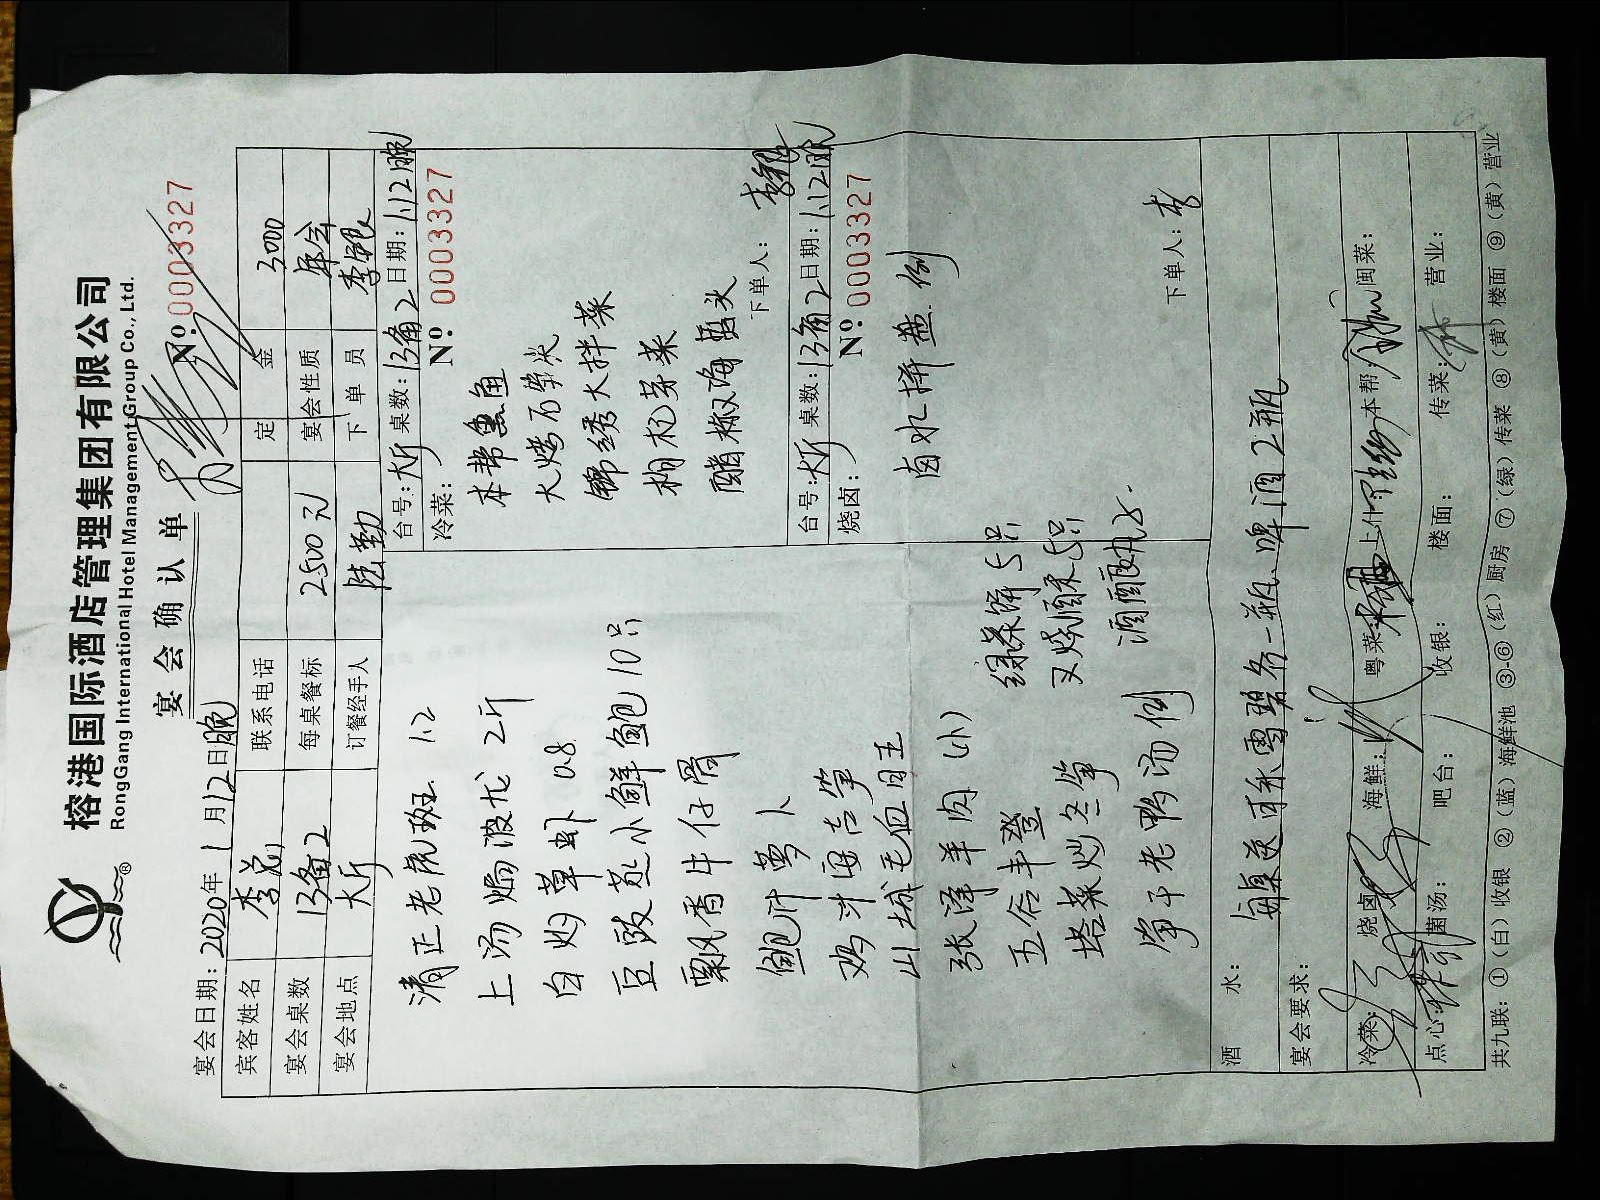 榕港国际酒店管理集团有限公司
RongGang International Hotel Management Group Co., Ltd.
®
宴会确认单
宴会日期：2020年1月12日晚
Nº.0003327
宾客姓名 李总 联系电话 定金 3000
宴会桌数 13备2 每桌餐标 2500元 宴会性质 年会
宴会地点 大厅 订餐经手人 陆勤 下单员 李银
台号：大厅 桌数：13备2 日期：1.12晚
冷菜： Nº 0003327
本帮熏鱼
大烤石学光
锦绣大拌菜
枸杞芽菜
陈椒海蜇头
下单人：李银
台号：大厅 桌数：13备2 日期：1.12晚
烧卤： Nº 0003327
卤水拼盘 例
下单人：李
清正老虎斑 1.2
上汤焗波龙 2斤
白灼草虾 0.8
豆豉蒸小鲜鲍 10只
飘香牛仔骨
鲍汁萝卜
鸡汁百吉笋
山城毛血旺
张泽羊肉 (小)
五谷丰登
塔菜炒冬笋
笋干老鸭汤 例
绿茶饼 5只
叉烧酥 5只
酒酿丸子.
酒水： 每桌送可乐雪碧各一瓶、啤酒2瓶
宴会要求：
冷菜： 烧卤： 海鲜： 粤菜 上什 本帮 闽菜：
点心： 菌汤： 吧台： 收银： 楼面： 传菜： 营业：
共九联：①（白）收银 ②（蓝）海鲜池 ③-⑥（红）厨房 ⑦（绿）传菜 ⑧（黄）楼面 ⑨（黄）营业